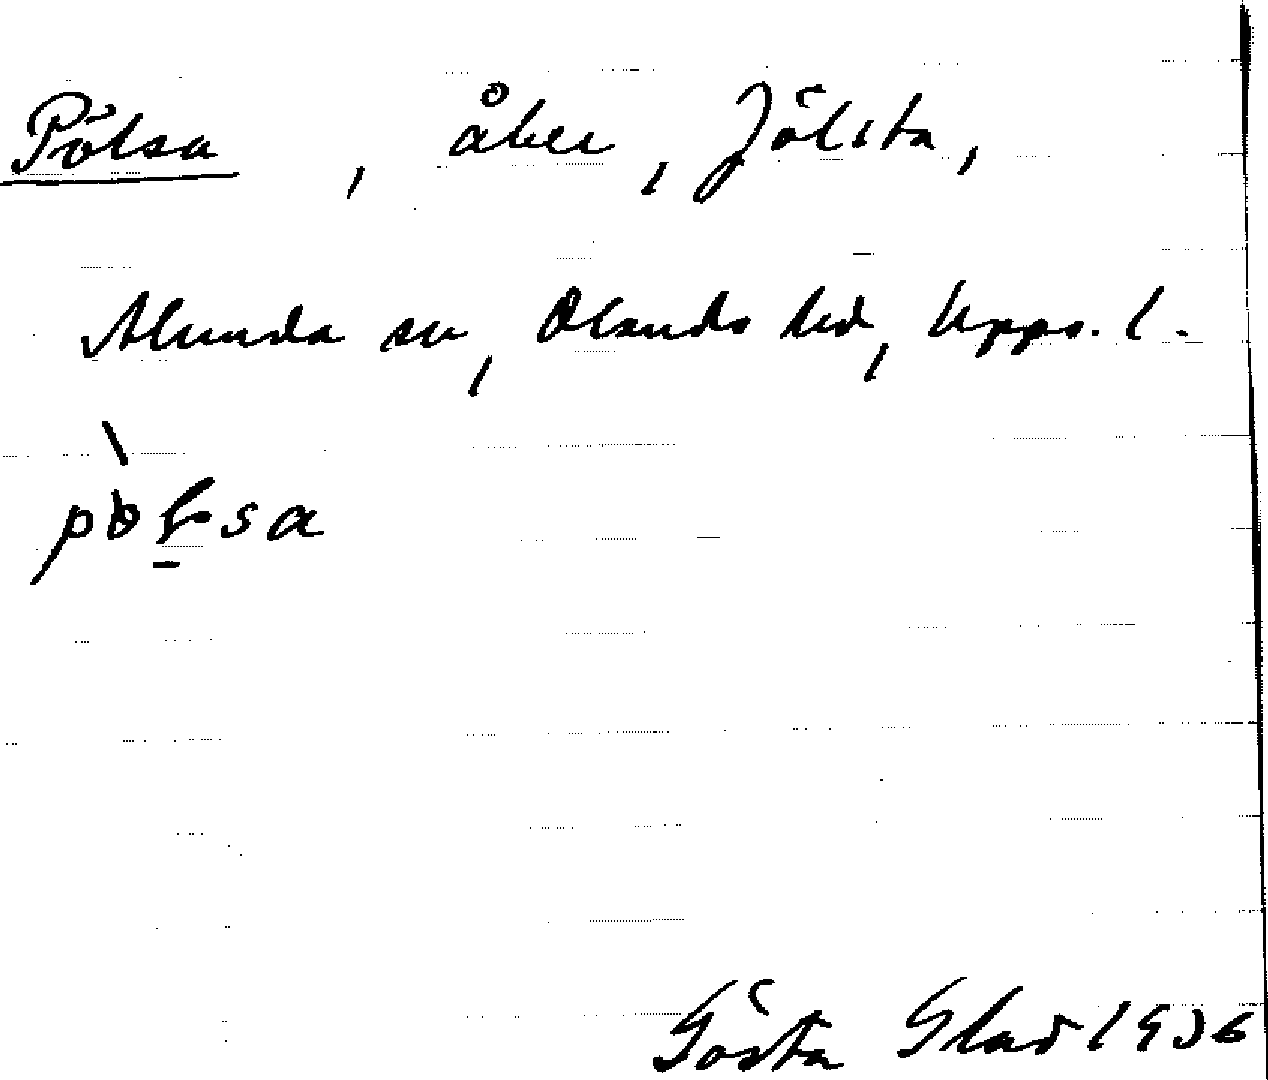 Pölsa, åker, Jölsta,
Alunda sn, Olands hd, Upps. l.
pòl̠sa
Gösta Glad 1936